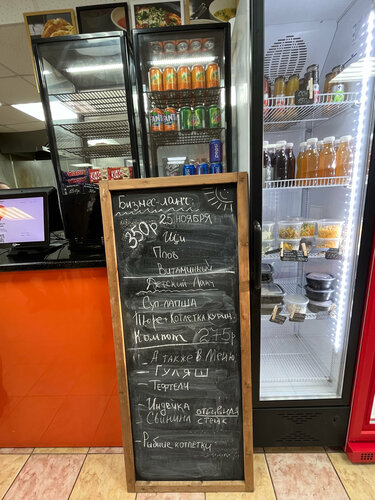 Бизнес-ланч
25 ноября
350р
Щи
Плов
Витаминный
Детский Ланч
Суп-лапша
Пюре + котлетка курин.
Компот 275р
- А также в Меню
- Гуляш
- Тефтели
- Индейка отбивная
- Свинина стейк
- Рыбные котлетки